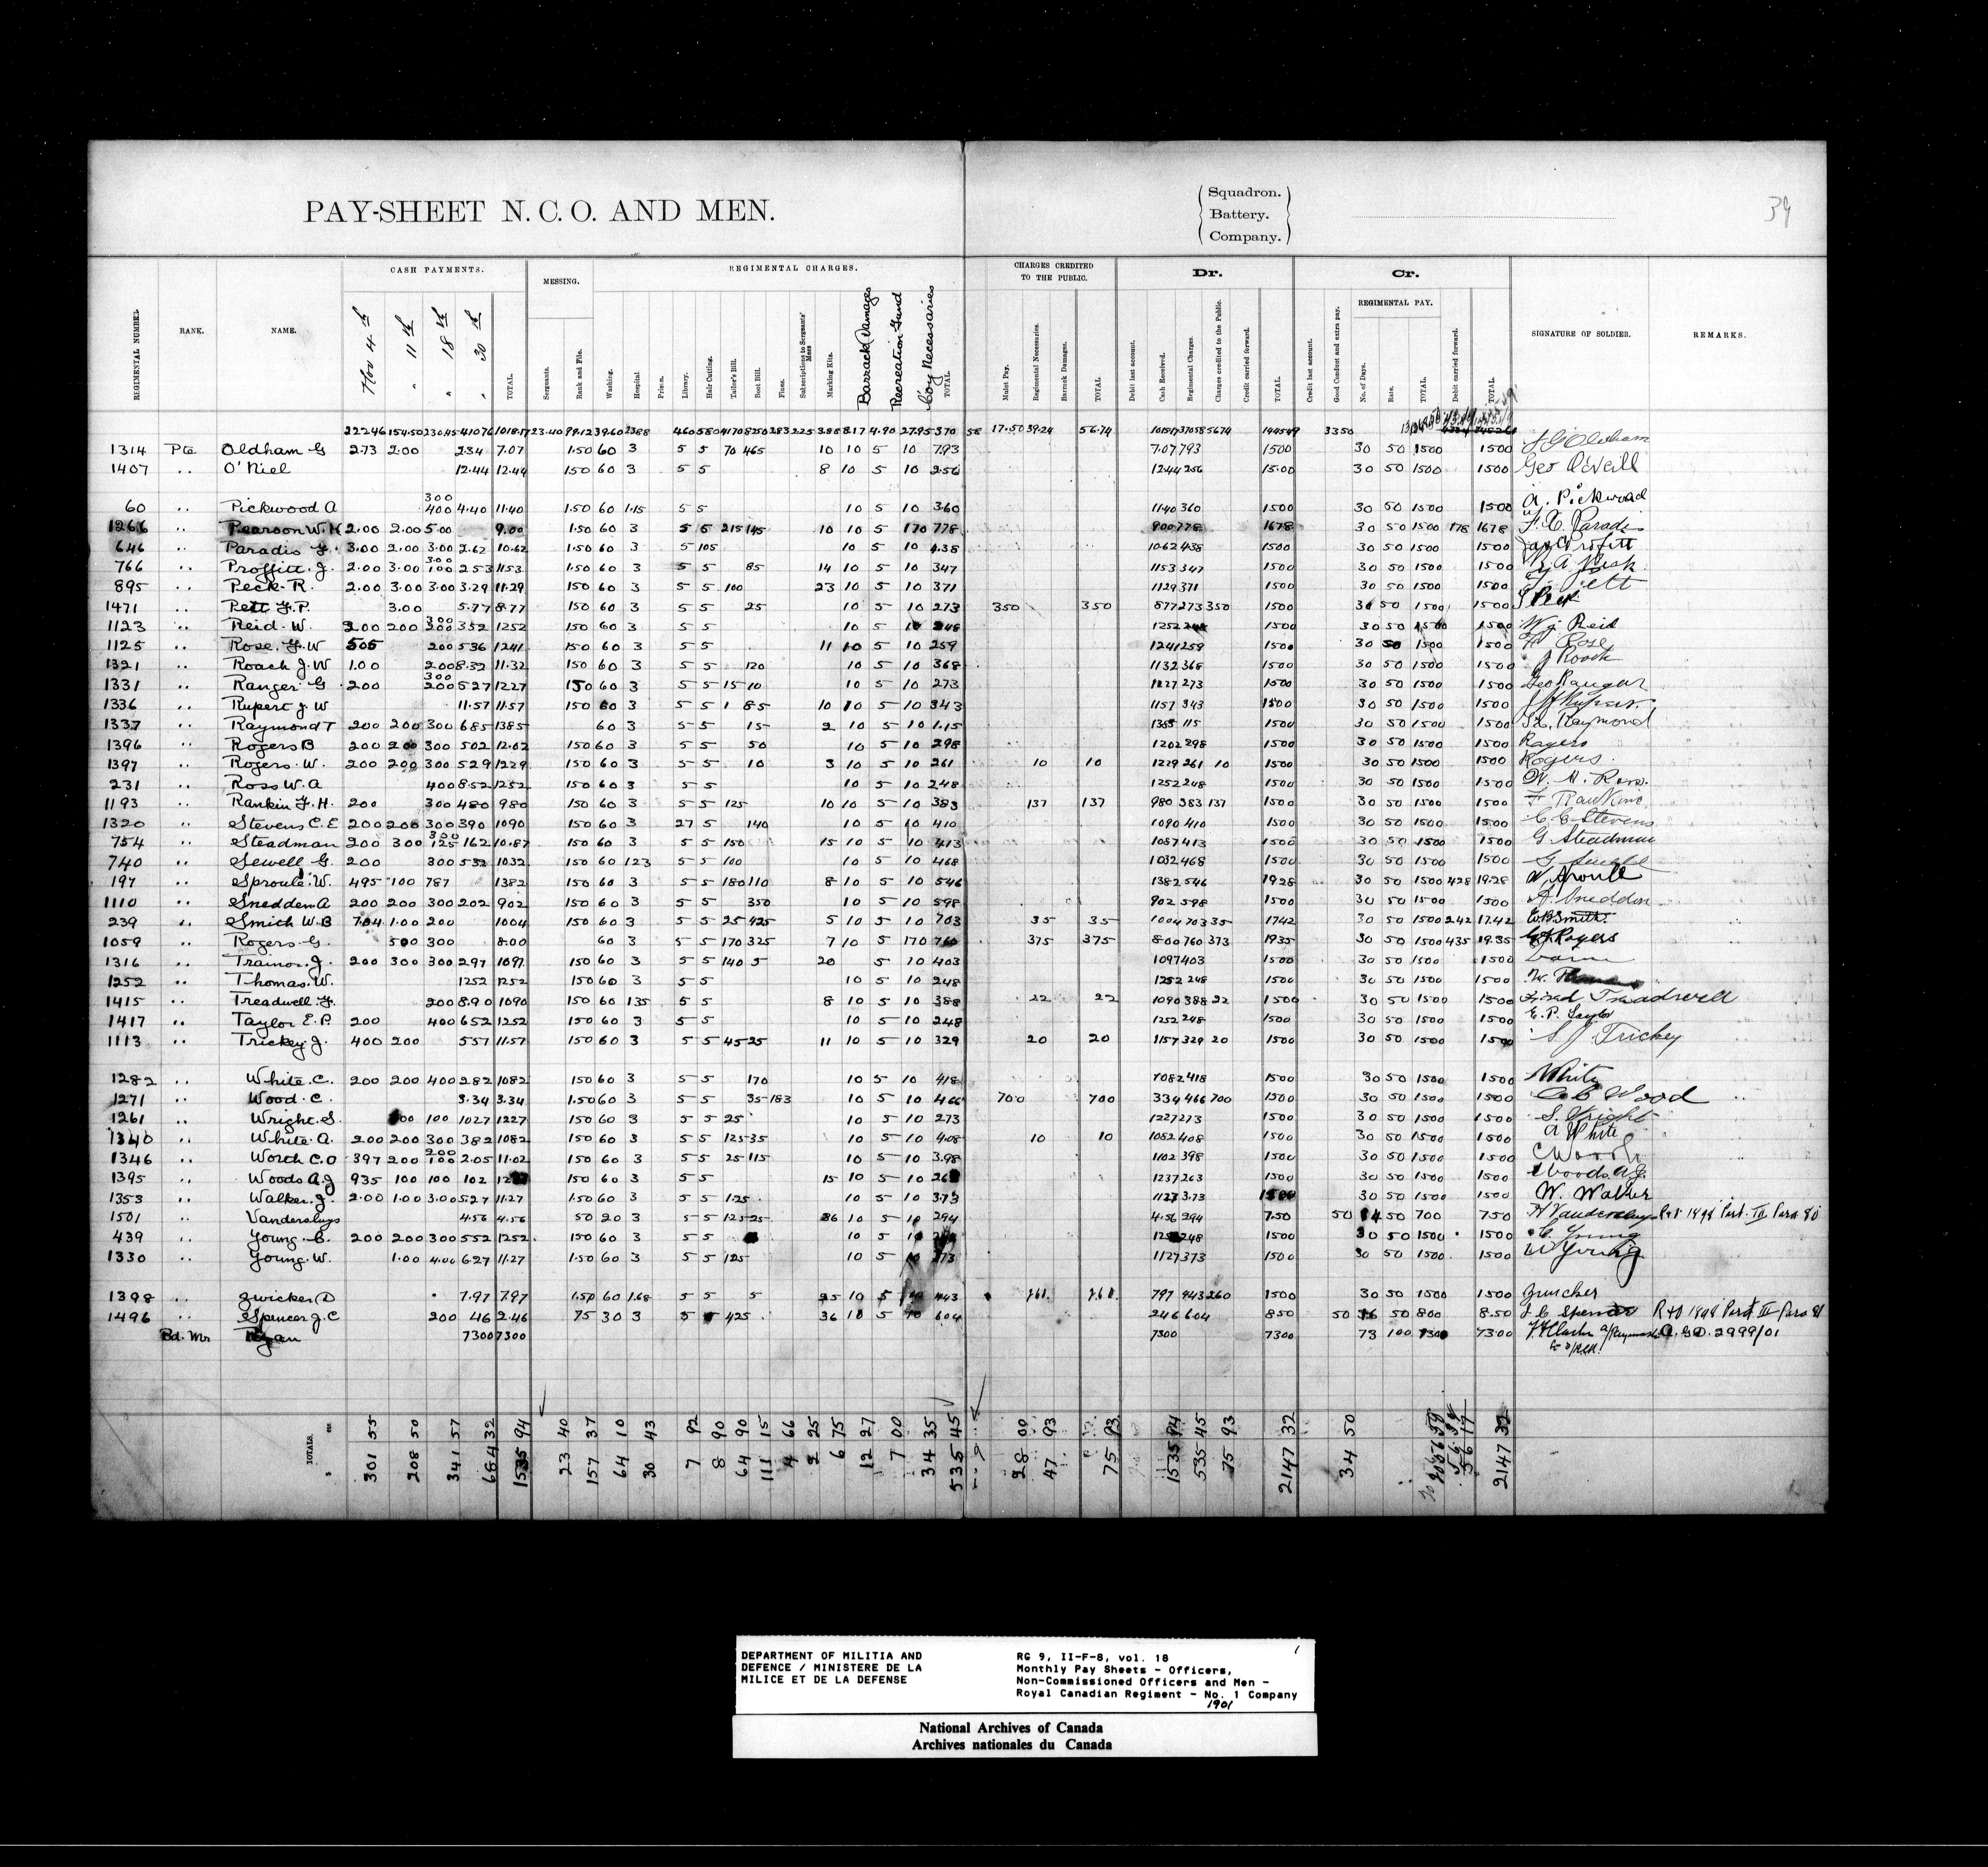 PAY-SHEET N. C. O. AND MEN.
Squadron.
Battery.
Company.
39
CASH PAYMENTS.
REGIMENTAL CHARGES.
CHARGES CREDITED TO THE PUBLIC.
Dr.
Cr.
MESSING.
REGIMENTAL PAY.
REGIMENTAL NUMBER RANK. NAME. Nov 4th " 11th " 18th " 30th TOTAL. Sergeants. Rank and File. Washing. Hospital. Prison. Library. Hair Cutting. Tailor's Bill. Boot Bill. Fines. Subscriptions to Sergeants' Mess Marking Kits. Barrack Damages Recreation Fund Coy Necessaries TOTAL. Mulct Pay. Regimental Necessaries. Barrack Damages. TOTAL Debit last account. Cash Received. Regimental Charges. Charges credited to the Public. Credit carried forward. TOTAL Credit last account. Good Conduct and extra pay. No. of Days. Rate. TOTAL Debit carried forward. TOTAL. SIGNATURE OF SOLDIER. REMARKS.
222.46 154.50 230.45 410.76 1018.17 23.40 99.12 39.60 23.88 4.60 5.80 41.70 8.17 4.90 27.95 370 58 17.50 39.24 56.74 370.58 56.74 1445.49 33.50
1314 Pte Oldham G 2.73 2.00 2.34 7.07 1.50 60 3 5 5 70 465 10 10 5 10 7.93 7.07 793 1500 30 50 1500 1500 J G Oldham
1407 " O'Niel 12.44 12.44 150 60 3 5 5 8 10 5 10 2.56 12.44 256 15.00 30 50 1500 1500 Geo O'Neill
60 " Pickwood A 300 400 4.40 11.40 1.50 60 1.15 5 5 10 5 10 360 1140 360 1500 30 50 1500 1500 A. Pickwood
1266 " Pearson W.H 2.00 2.00 5.00 9.00 1.50 60 3 5 5 215 145 10 10 5 170 778 900 778 1678 30 50 1500 178 1678
646 " Paradis F. 3.00 2.00 3.00 2.62 10.62 1.50 60 3 5 105 10 5 10 4.38 1062 438 1500 30 50 1500 1500 F. X. Paradis
766 " Proffitt J. 2.00 3.00 300 100 253 1153 1.50 60 3 5 5 85 14 10 5 10 347 1153 347 1500 30 50 1500 1500 Jas Profitt
895 " Peck R. 2.00 3.00 3.00 3.29 11.29 150 60 3 5 5 100 23 10 5 10 371 1129 371 1500 30 50 1500 1500
1471 " Pett F.P. 3.00 5.77 8.77 150 60 3 5 5 25 10 5 10 273 350 350 877 273 350 1500 30 50 1500 1500
1123 " Reid W. 200 200 300 200 352 1252 150 60 3 5 5 10 5 10 248 1252 248 1500 30 50 1500 1500 Wj Reid
1125 " Rose F. W 505 200 536 1241 150 60 3 5 5 11 10 5 10 259 1241 259 1500 30 50 1500 1500 Rose
1321 " Roach J. W 1.00 200 8.32 11.32 150 60 3 5 5 120 10 5 10 368 1132 368 1500 30 50 1500 1500 J Roach
1331 " Ranger G 200 300 200 527 1227 150 60 3 5 5 15 10 10 5 10 273 1227 273 1500 30 50 1500 1500 Geo Ranger
1336 " Rupert J. W 11.57 11.57 150 60 3 5 5 1 85 10 10 5 10 343 1157 343 1500 30 50 1500 1500
1337 " Raymond T 200 200 300 685 1385 60 3 5 5 15 2 10 5 10 1.15 1385 115 1500 30 50 1500 1500 Raymond
1396 " Rogers B 200 200 300 502 12.02 150 60 3 5 5 50 10 5 10 298 1202 298 1500 30 50 1500 1500 Rogers
1397 " Rogers W. 200 200 300 529 1229 150 60 3 5 5 10 3 10 5 10 261 10 10 1229 261 10 1500 30 50 1500 1500 Rogers
231 " Ross W. A 400 8.52 1252 150 60 3 5 5 10 5 10 248 1252 248 1500 30 50 1500 1500 W. A. Ross
1193 " Rankin F. H. 200 300 480 980 150 60 3 5 5 125 10 10 5 10 383 137 137 980 383 137 1500 30 50 1500 1500 F Rankine
1320 " Stevens C. E 200 200 300 390 1090 150 60 3 27 5 140 10 5 10 410 1090 410 1500 30 50 1500 1500 C E Stevens
754 " Steadman 200 300 300 125 162 10.87 150 60 3 5 5 150 15 10 5 10 413 1087 413 1500 30 50 1500 1500 G. Steadman
740 " Sewell G. 200 300 532 1032 150 60 123 5 5 100 10 5 10 468 1032 468 1500 30 50 1500 1500 G Sewell
197 " Sproule W. 495 100 787 1382 150 60 3 5 5 180 110 8 10 5 10 546 1382 546 1928 30 50 1500 428 19.28 W Sproule
1110 " Snedden A 200 200 300 202 902 150 60 3 5 5 350 10 5 10 598 902 598 1500 30 50 1500 1500 A Sneddon
239 " Smith W. B 704 1.00 200 1004 150 60 3 5 5 25 425 5 10 5 10 703 35 35 1004 703 35 1742 30 50 1500 242 17.42 W.B. Smith
1059 " Rogers G. 500 300 8.00 60 3 5 5 170 325 7 10 5 170 760 375 375 800 760 373 1935 30 50 1500 435 19.35 G J Rogers
1316 " Trainor J. 200 300 300 297 1097 150 60 3 5 5 140 5 20 5 10 403 1097 403 1500 30 50 1500 1500
1252 " Thomas W. 1252 1252 150 60 3 5 5 10 5 10 248 1252 248 1500 30 50 1500 1500
1415 " Treadwell F. 200 8.90 1090 150 60 135 5 5 8 10 5 10 388 22 22 1090 388 22 1500 30 50 1500 1500 Fred Treadwell
1417 " Taylor E. P. 200 400 652 1252 150 60 3 5 5 10 5 10 248 1252 248 1500 30 50 1500 1500 E. P. Taylor
1113 " Trickey J. 400 200 557 11.57 150 60 3 5 5 45 25 11 10 5 10 329 20 20 1157 329 20 1500 30 50 1500 1500 S J Trickey
1282 " White C. 200 200 400 282 1082 150 60 3 5 5 170 10 5 10 418 1082 418 1500 30 50 1500 1500 White
1271 " Wood C. 3.34 3.34 1.50 60 3 5 5 35 183 10 5 10 466 700 700 334 466 700 1500 30 50 1500 1500 C Wood
1261 " Wright S. 100 1027 1227 150 60 3 5 5 25 10 5 10 273 1227 273 1500 30 50 1500 1500 S. Wright
1340 " White A. 200 200 300 382 1082 150 60 3 5 5 125 35 10 5 10 408 10 10 1082 408 1500 30 50 1500 1500 A White
1346 " Worth C. O 397 200 200 100 2.05 11.02 150 60 3 5 5 25 115 10 5 10 3.98 1102 398 1500 30 50 1500 1500 C Worth
1395 " Woods A. J 935 100 100 102 150 60 3 5 5 15 10 5 10 1237 263 1500 30 50 1500 1500 Woods A.J.
1353 " Walker J. 2.00 1.00 3.00 527 11.27 1.50 60 3 5 5 125 10 5 10 373 1127 373 1500 30 50 1500 1500 W. Walker
1501 " Vandersluys 4.56 4.56 50 20 3 5 5 125 25 36 10 5 10 294 4.56 294 7.50 50 14 50 700 750 Vandersluys R&O 1898 Part. III Para 80
439 " Young C. 200 200 300 552 1252 150 60 3 5 5 10 5 10 248 1500 30 50 1500 1500 C. Young
1330 " Young W. 1.00 4.00 627 11.27 1.50 60 3 5 5 125 10 5 10 373 1127 373 1500 30 50 1500 1500 W Young
1398 " Zwicker D 7.97 7.97 1.50 60 1.68 5 5 5 25 10 5 443 797 443 260 1500 30 50 1500 1500 Zwicker
1496 " Spencer J. C 200 46 2.46 75 30 3 5 5 425 36 10 5 10 604 246 604 850 50 16 50 800 8.50 J. C Spencer R&O 1898 Part III Para 81
Bd. Mr Ryan 7300 7300 7300 7300 73 100 7300 7300 A. G. O. 2999/01
TOTALS. 301 55 208 50 341 57 684 32 1535 94 23 40 157 37 64 10 30 43 7 92 8 90 64 90 111 15 4 66 2 25 6 75 12 27 7 00 34 35 535 45 28 00 47 93 75 93 1535 94 535 45 75 93 2147 32 34 50 2056 59 2147 32
DEPARTMENT OF MILITIA AND
DEFENCE / MINISTERE DE LA
MILICE ET DE LA DEFENSE
RG 9, II-F-8, vol. 18
Monthly Pay Sheets - Officers,
Non-Commissioned Officers and Men -
Royal Canadian Regiment - No. 1 Company
1901
National Archives of Canada
Archives nationales du Canada